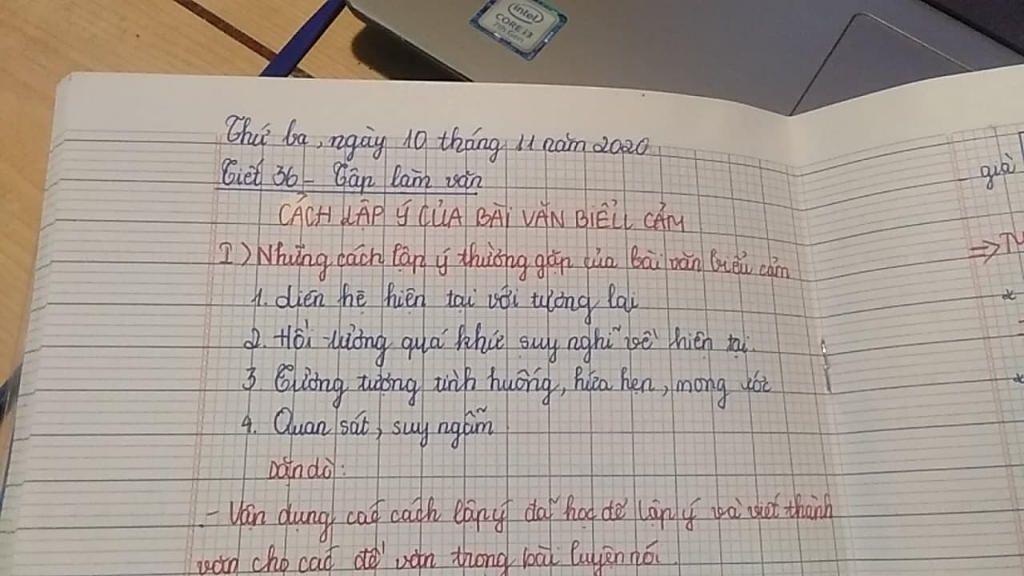 intel
CORE i3
Thứ ba, ngày 10 tháng 11 năm 2020
Tiết 36 - Tập làm văn
CÁCH LẬP Ý CỦA BÀI VĂN BIỂU CẢM
I) Những cách lập ý thường gặp của bài văn biểu cảm
1. Liên hệ hiện tại với tương lai
2. Hồi tưởng quá khứ suy nghĩ về hiện tại.
3 Tưởng tượng tình huống, hứa hẹn, mong ước
4. Quan sát, suy ngẫm
Dặn dò:
- Vận dụng các cách lập ý đã học để lập ý và viết thành
văn cho các đề văn trong bài luyện nói.
giả